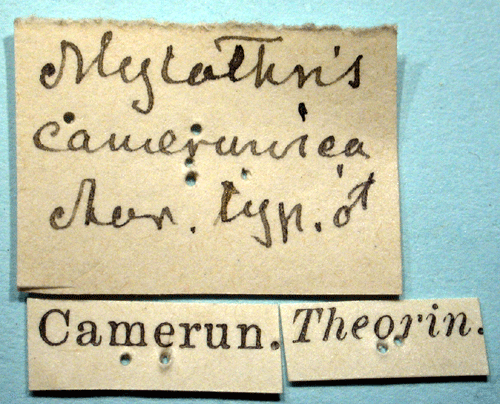 Mylothris
camerunica
Aur. typ. ♂
Camerun. Theorin.